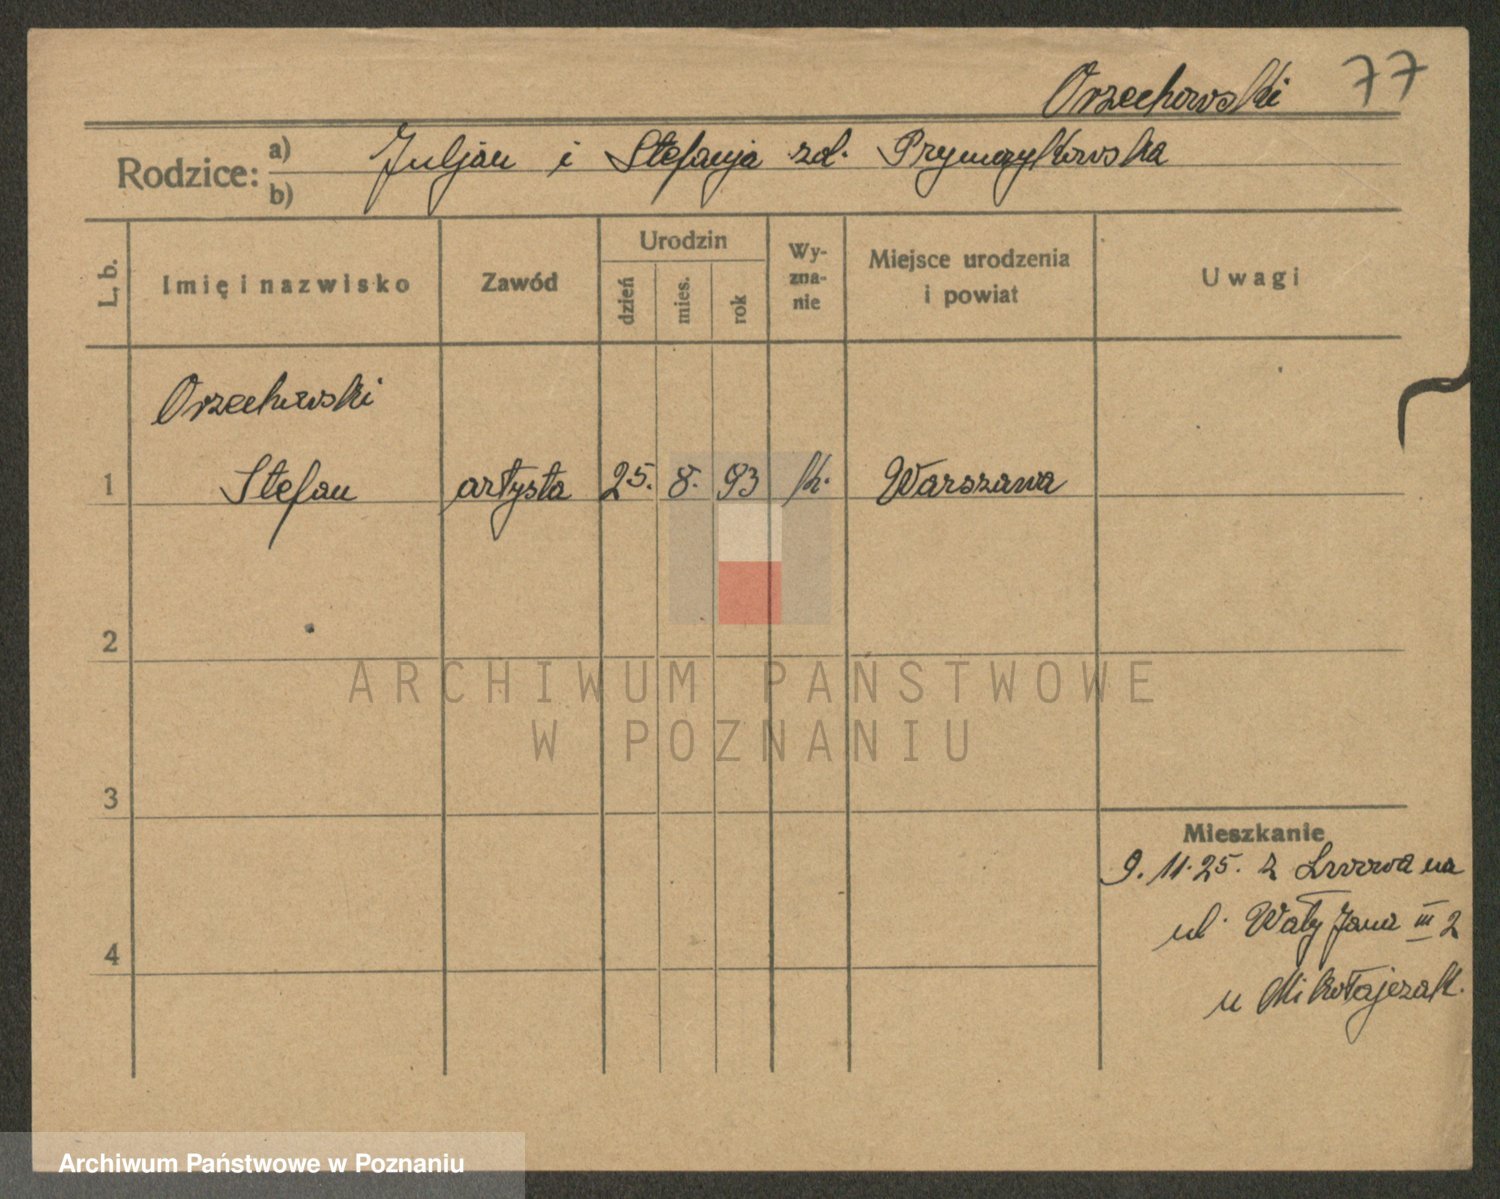 Orzechowski 77
Rodzice: a) b) Juljan i Stefanja zd. Prymczykowska
L. b. Imię i nazwisko Zawód Urodzin dzień mies. rok Wyzna-nie Miejsce urodzenia i powiat Uwagi
Orzechowski
1 Stefan artysta 25. 8. 93 k. Warszawa
2
ARCHIWUM PAŃSTWOWE
W POZNANIU
3
Mieszkanie
9. 11. 25. z Lwowa na
ul. Wały Jana III 2
4
u Mikołajczak.
Archiwum Państwowe w Poznaniu